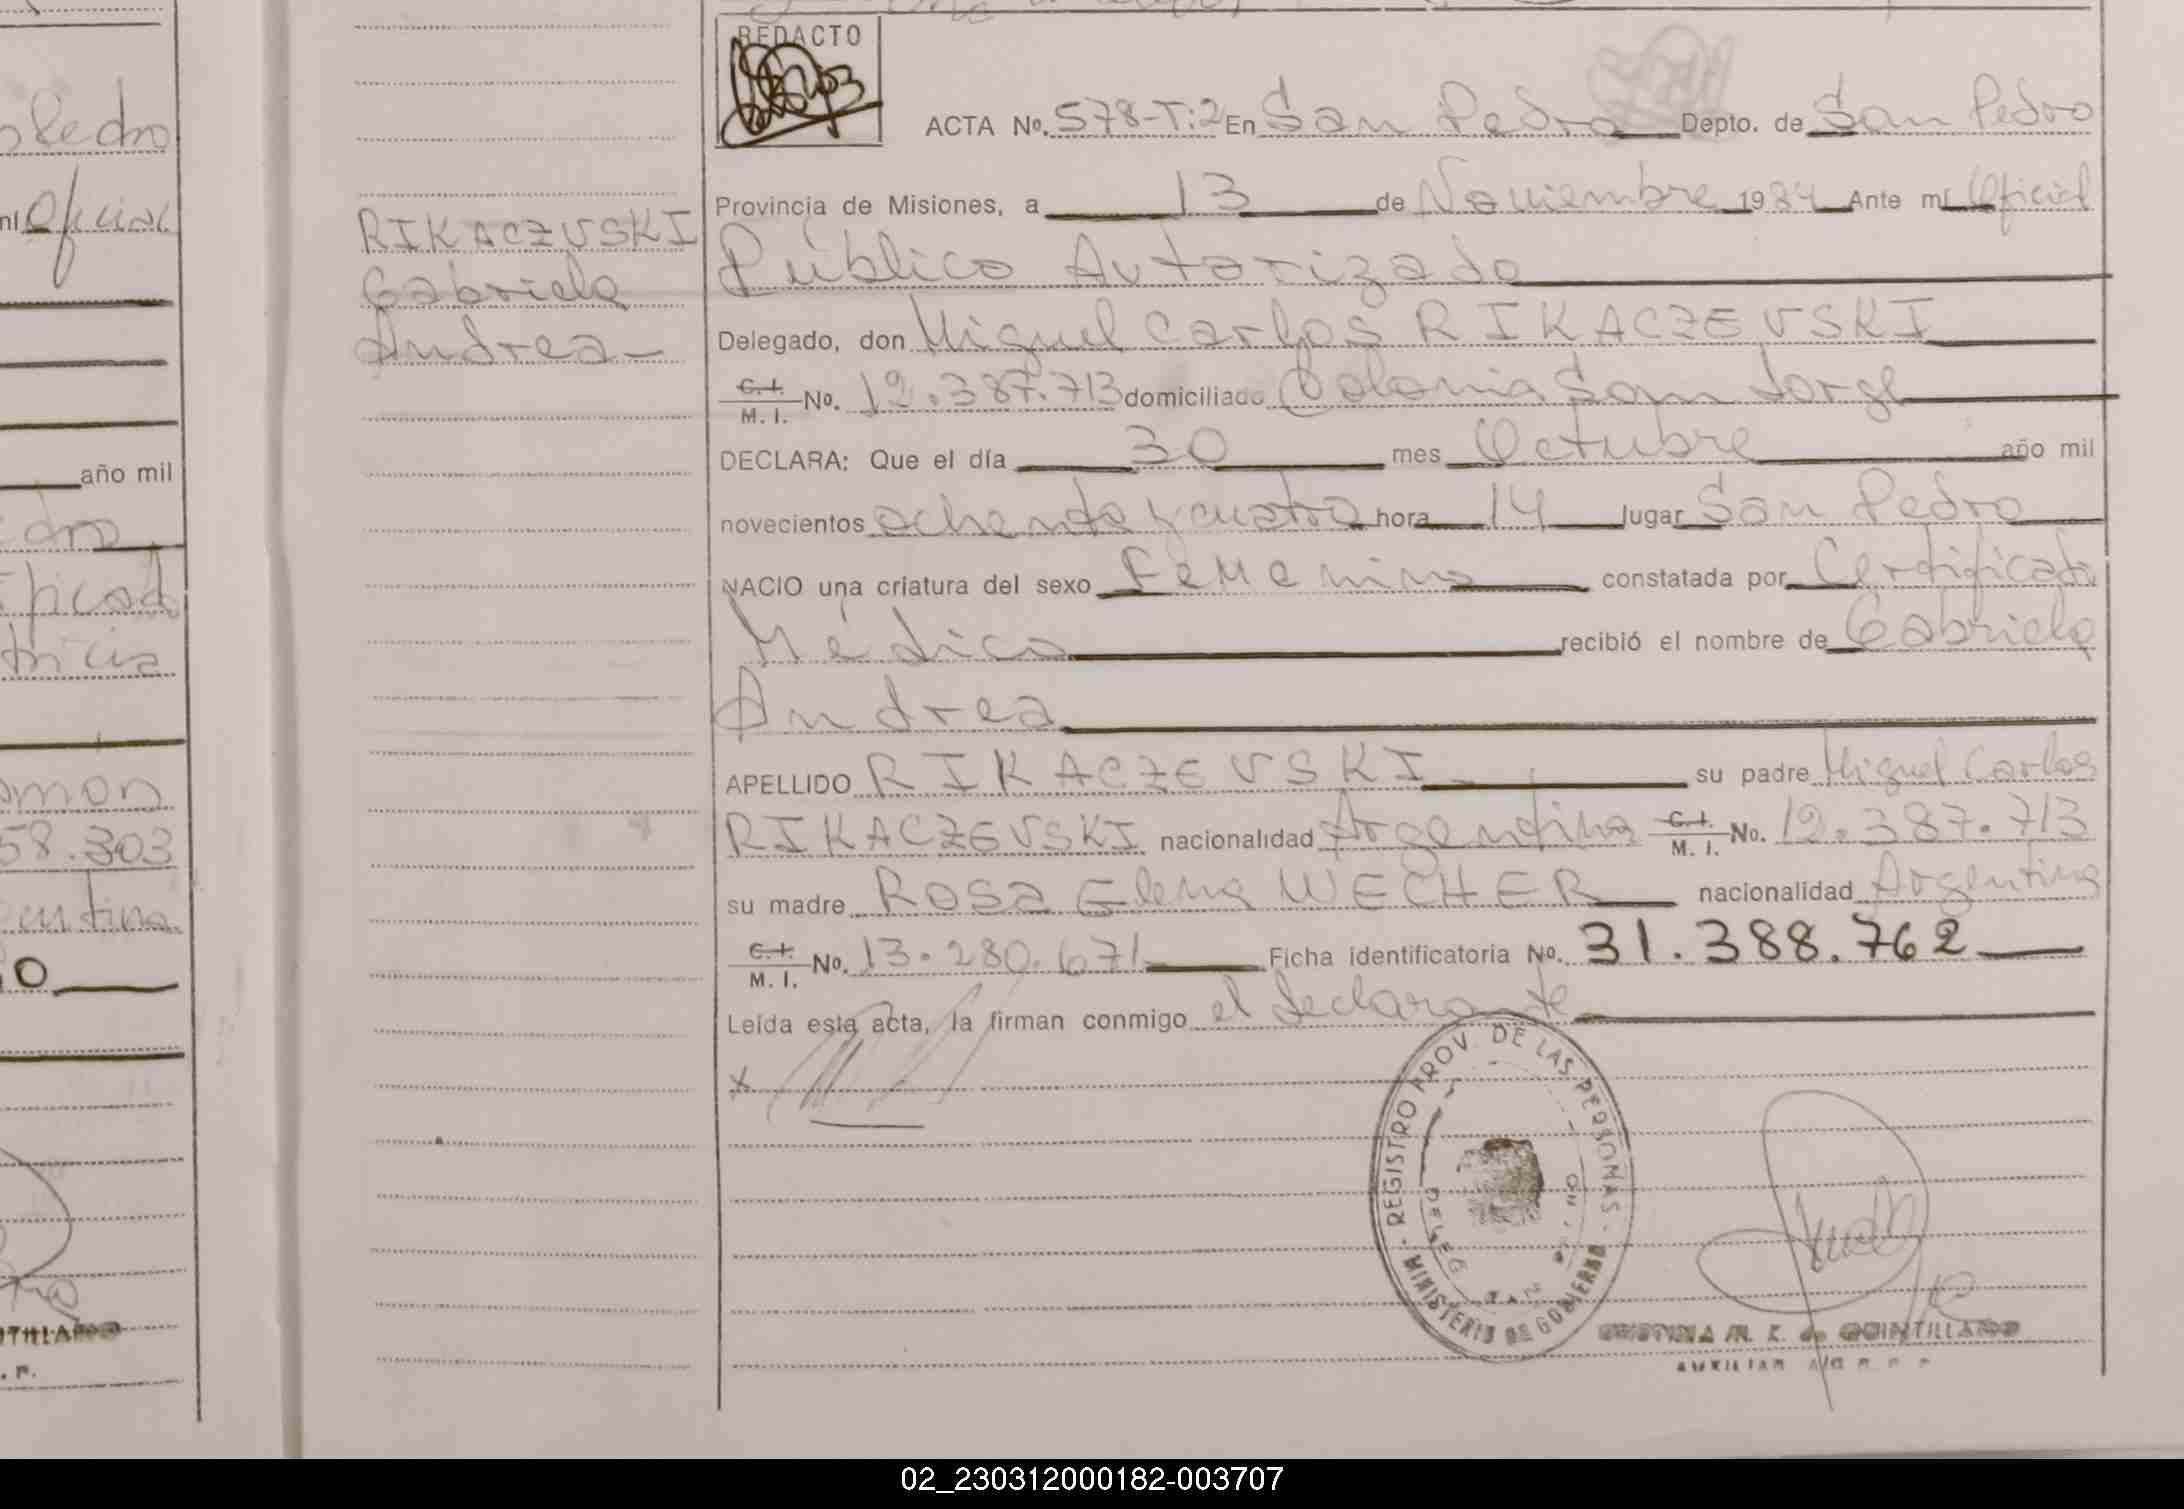 REDACTO
ACTA No. 578-T:2 En San Pedro Depto. de San Pedro
Provincia de Misiones, a 13 de Noviembre 1984 Ante mí Oficial
Público Autorizado
Delegado, don Miguel Carlos RIKACZEVSKI
C. I. M. I. No. 12.387.713 domiciliado Colonia San Jorge
DECLARA: Que el día 30 mes Octubre año mil
novecientos ochenta y cuatro hora 14 lugar San Pedro
NACIO una criatura del sexo Femenino constatada por Certificado
Médico recibió el nombre de Gabriela
Andrea
APELLIDO RIKACZEVSKI su padre Miguel Carlos
RIKACZEVSKI nacionalidad Argentina C. I. M. I. No. 12.387.713
su madre Rosa Elena WECHER nacionalidad Argentina
C. I. M. I. No. 13.280.671 Ficha identificatoria No. 31.388.762
Leída esta acta, la firman conmigo el declarante
x
REGISTRO PROV. DE LAS PERSONAS
MINISTERIO DE GOBIERNO
CRISTINA M. K. de QUINTILLANO
AUXILIAR
RIKACZVSKI
Gabriela
Andrea
Pedro
Oficial
año mil
58.303
02_230312000182-003707